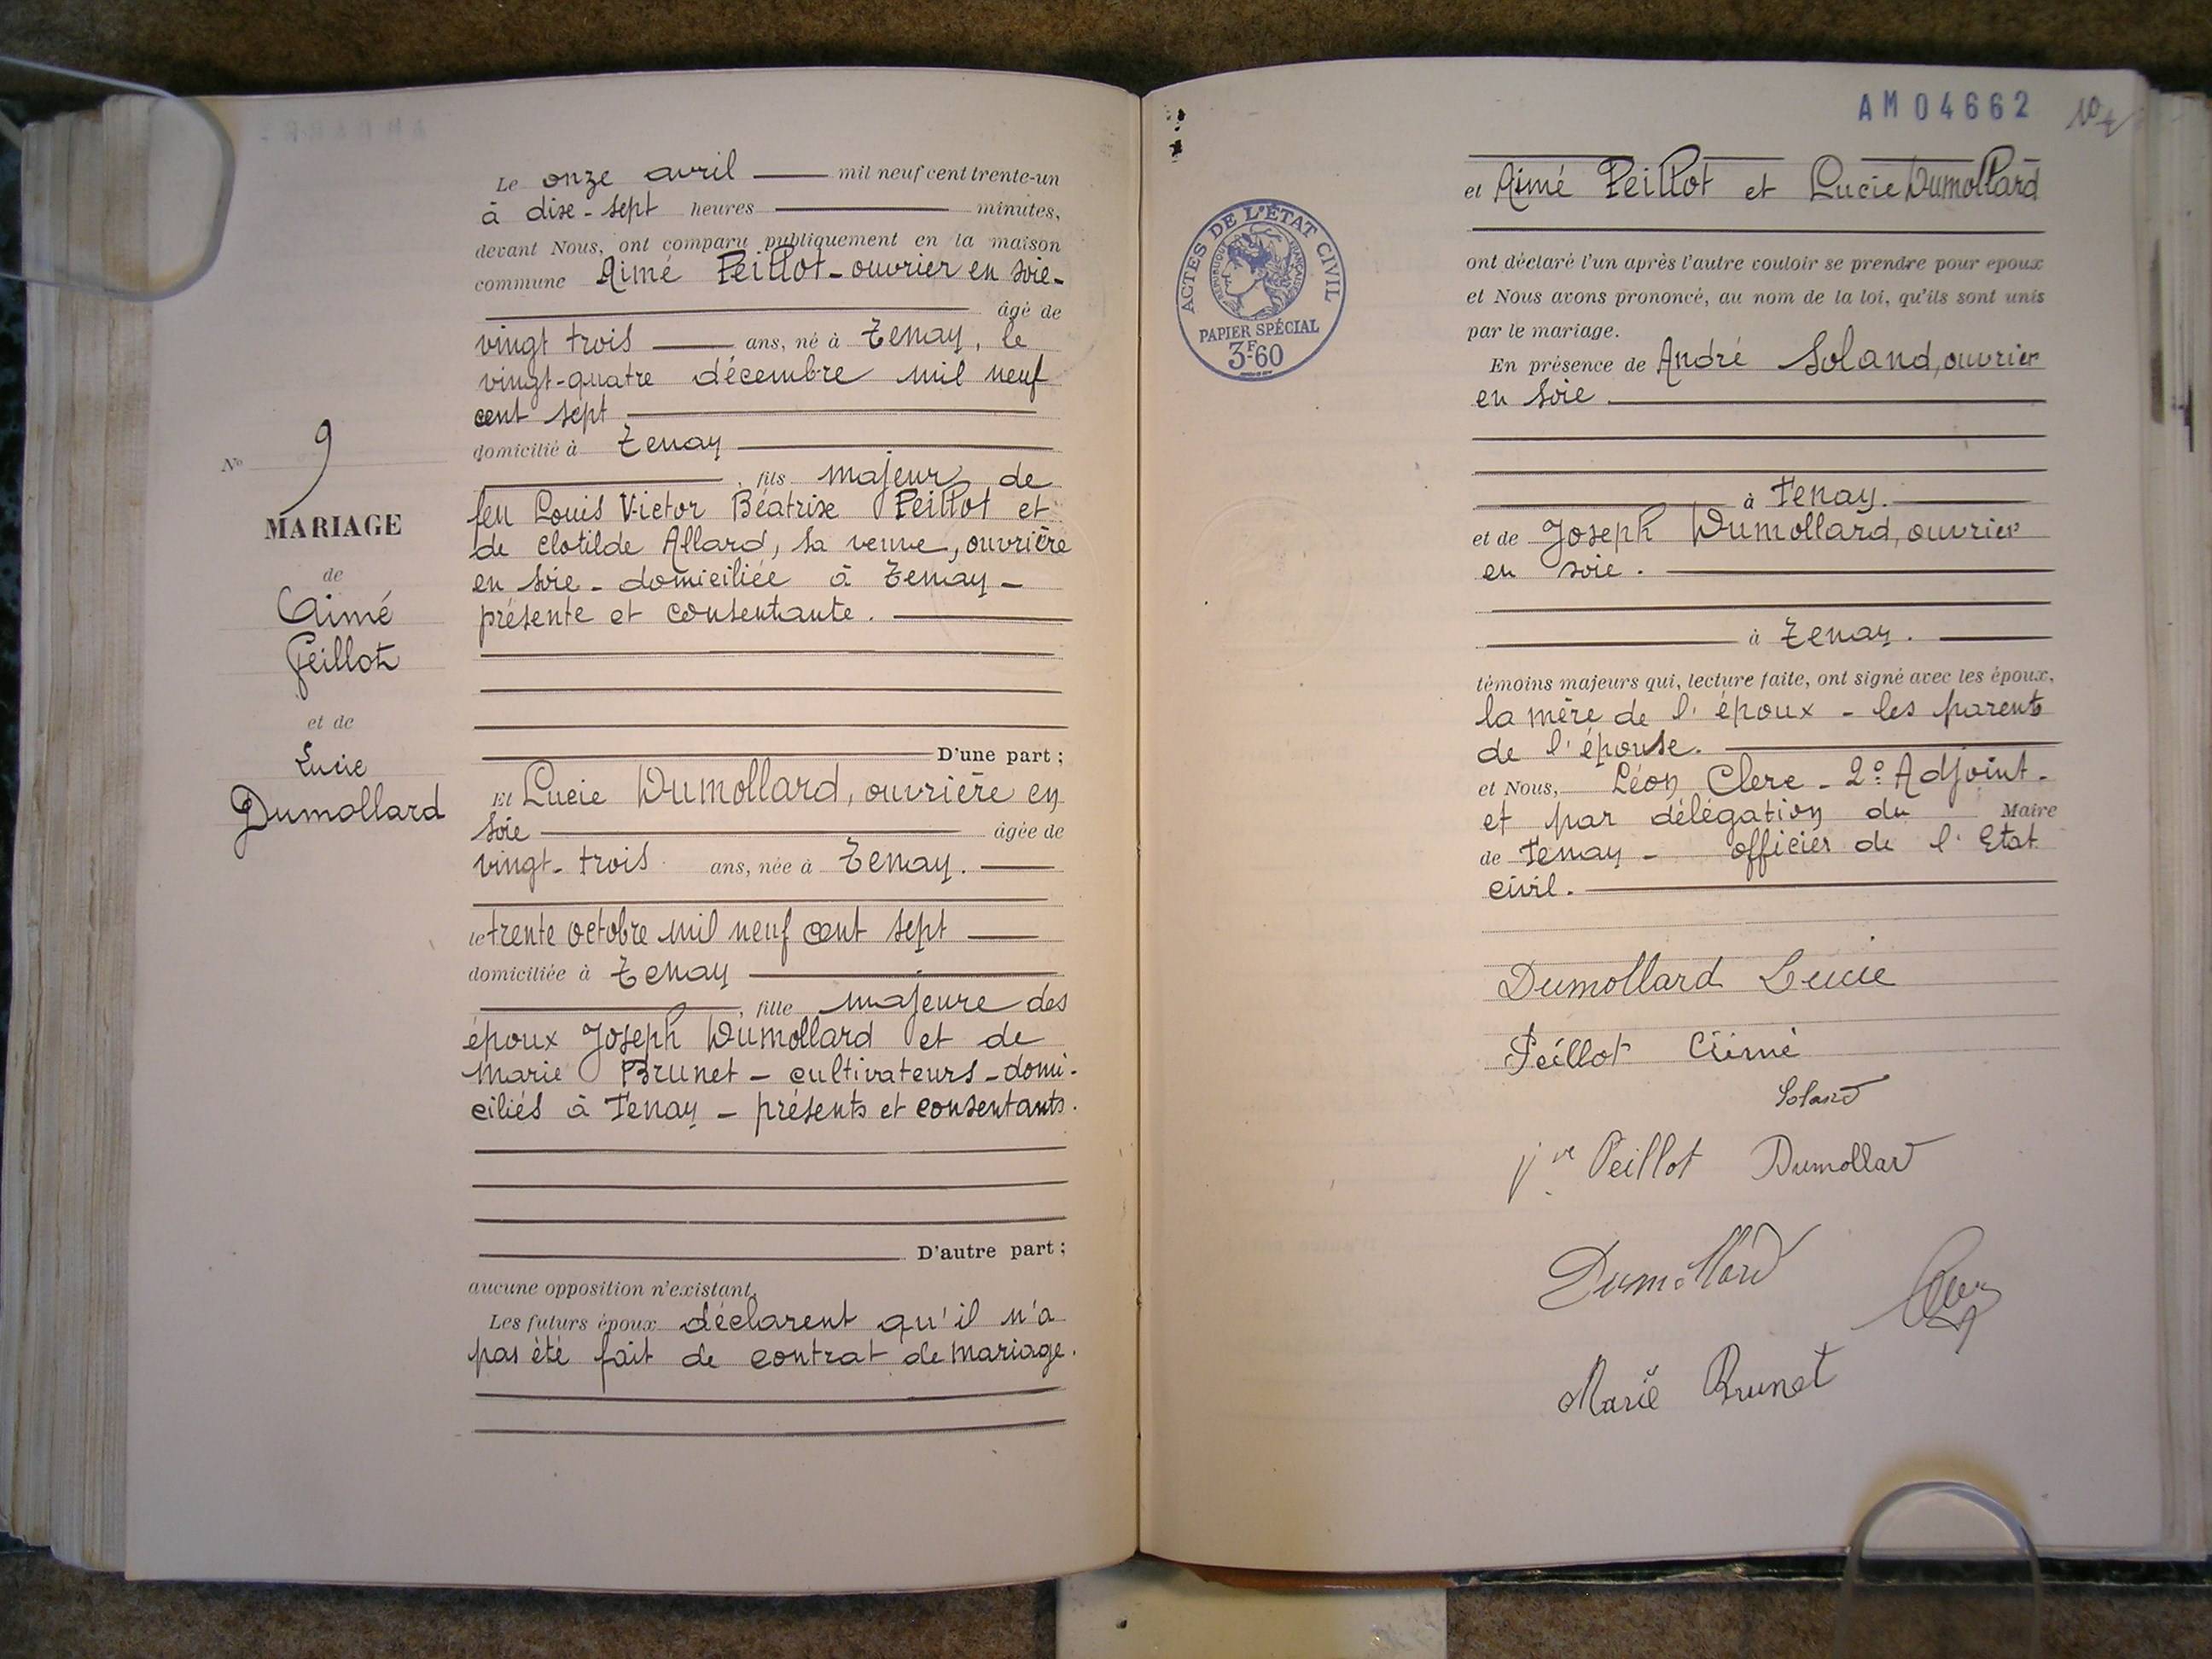 Le onze avril mil neuf cent trente-un
à dixe-sept heures minutes,
devant Nous, ont comparu publiquement en la maison
commune Aimé Peillot - ouvrier en soie -
âgé de
vingt trois ans, né à Tenay, le
vingt-quatre décembre mil neuf
cent sept
domicilié à Tenay
, fils majeur de
feu Louis Victor Béatrixe Peillot et
de Clotilde Allard, sa veuve, ouvrière
en soie - domiciliée à Tenay -
présente et consentante.
D'une part ;
Et Lucie Dumollard, ouvrière en
soie âgée de
vingt-trois ans, née à Tenay.
le trente octobre mil neuf cent sept
domiciliée à Tenay
, fille majeure des
époux Joseph Dumollard et de
Marie Brunet - cultivateurs - domi-
ciliés à Tenay - présents et consentants.
D'autre part ;
aucune opposition n'existant.
Les futurs époux déclarent qu'il n'a
pas été fait de contrat de mariage.
No 9
MARIAGE
de
Aimé
Peillot
et de
Lucie
Dumollard
AM04662
et Aimé Peillot et Lucie Dumollard
ont déclaré l'un après l'autre vouloir se prendre pour époux
et Nous avons prononcé, au nom de la loi, qu'ils sont unis
par le mariage.
En présence de André Soland, ouvrier
en soie.
à Tenay.
et de Joseph Dumollard, ouvrier
en soie.
à Tenay.
témoins majeurs qui, lecture faite, ont signé avec les époux,
la mère de l'époux - les parents
de l'épouse.
et Nous, Léon Clerc - 2e Adjoint -
et par délégation du Maire
de Tenay - officier de l'Etat
civil.
Dumollard Lucie
Peillot Aimé
Soland
Vve Peillot Dumollard
Dumollard
Marie Brunet
ACTES DE L'ÉTAT CIVIL
RÉPUBLIQUE FRANÇAISE
PAPIER SPÉCIAL
3F60